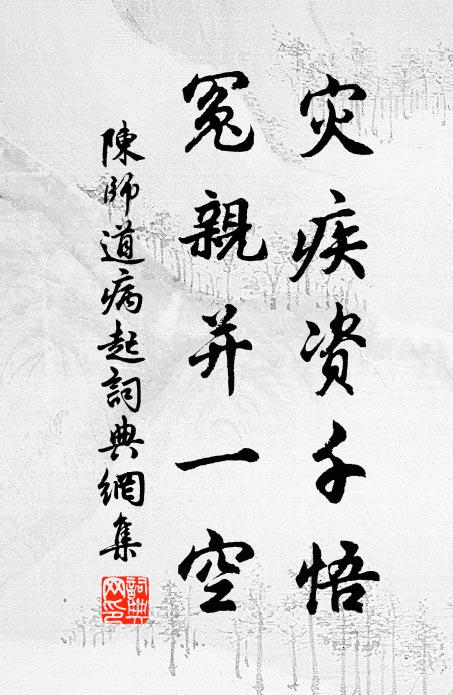 灾疾资千悟
冤親并一空
陳師道病起詞典網集
詞典网印